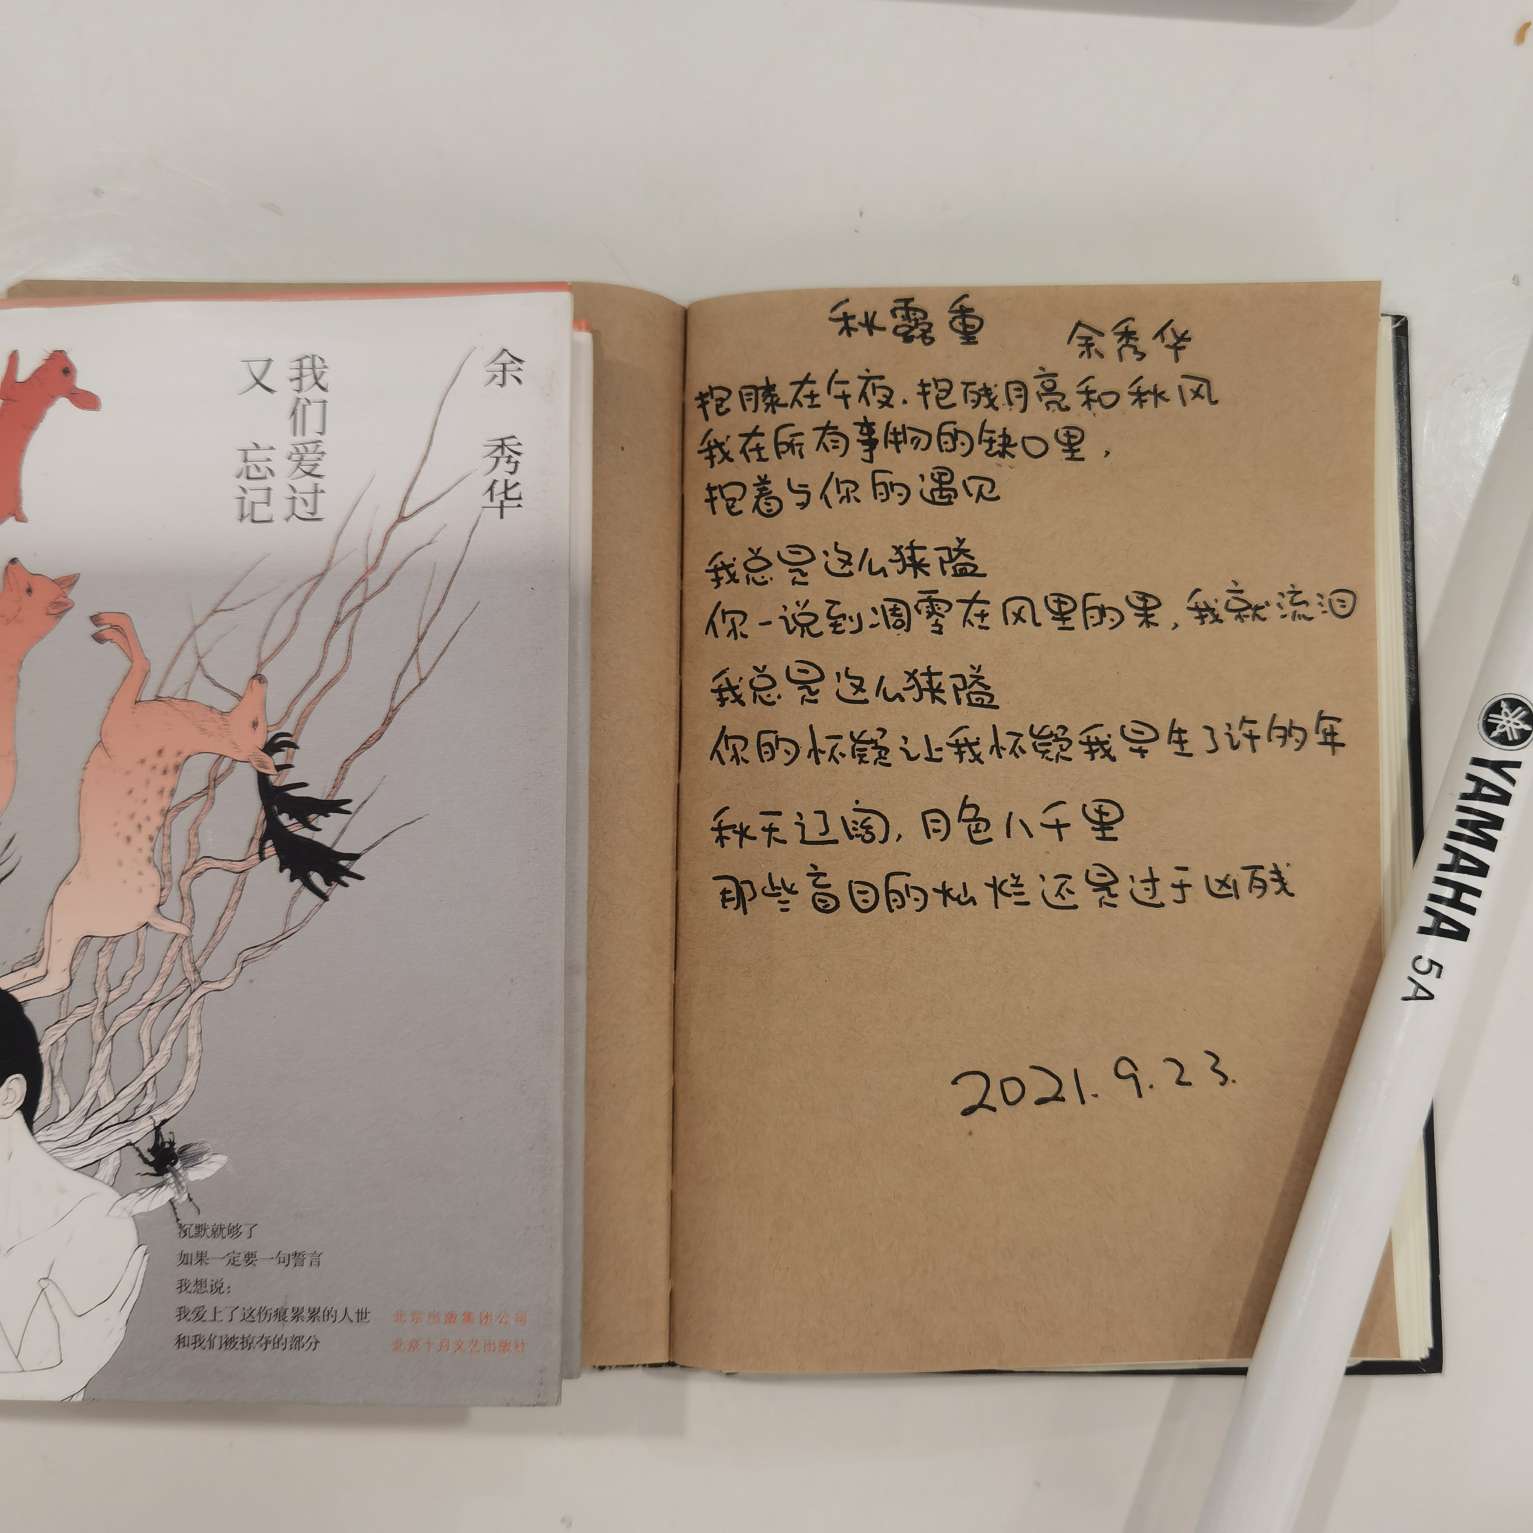 余秀华
我们爱过
又忘记
沉默就够了
如果一定要一句誓言
我想说：
我爱上了这伤痕累累的人世
和我们被掠夺的部分
北京出版集团公司
北京十月文艺出版社
秋露重
余秀华
抱膝在午夜.抱残月亮和秋风
我在所有事物的缺口里,
抱着与你的遇见
我总是这么狭隘
你一说到凋零在风里的果,我就流泪
我总是这么狭隘
你的怀疑让我怀疑我早生了许的年
秋天辽阔,月色八千里
那些盲目的灿烂还是过于凶残
2021.9.23.
YAMAHA 5A